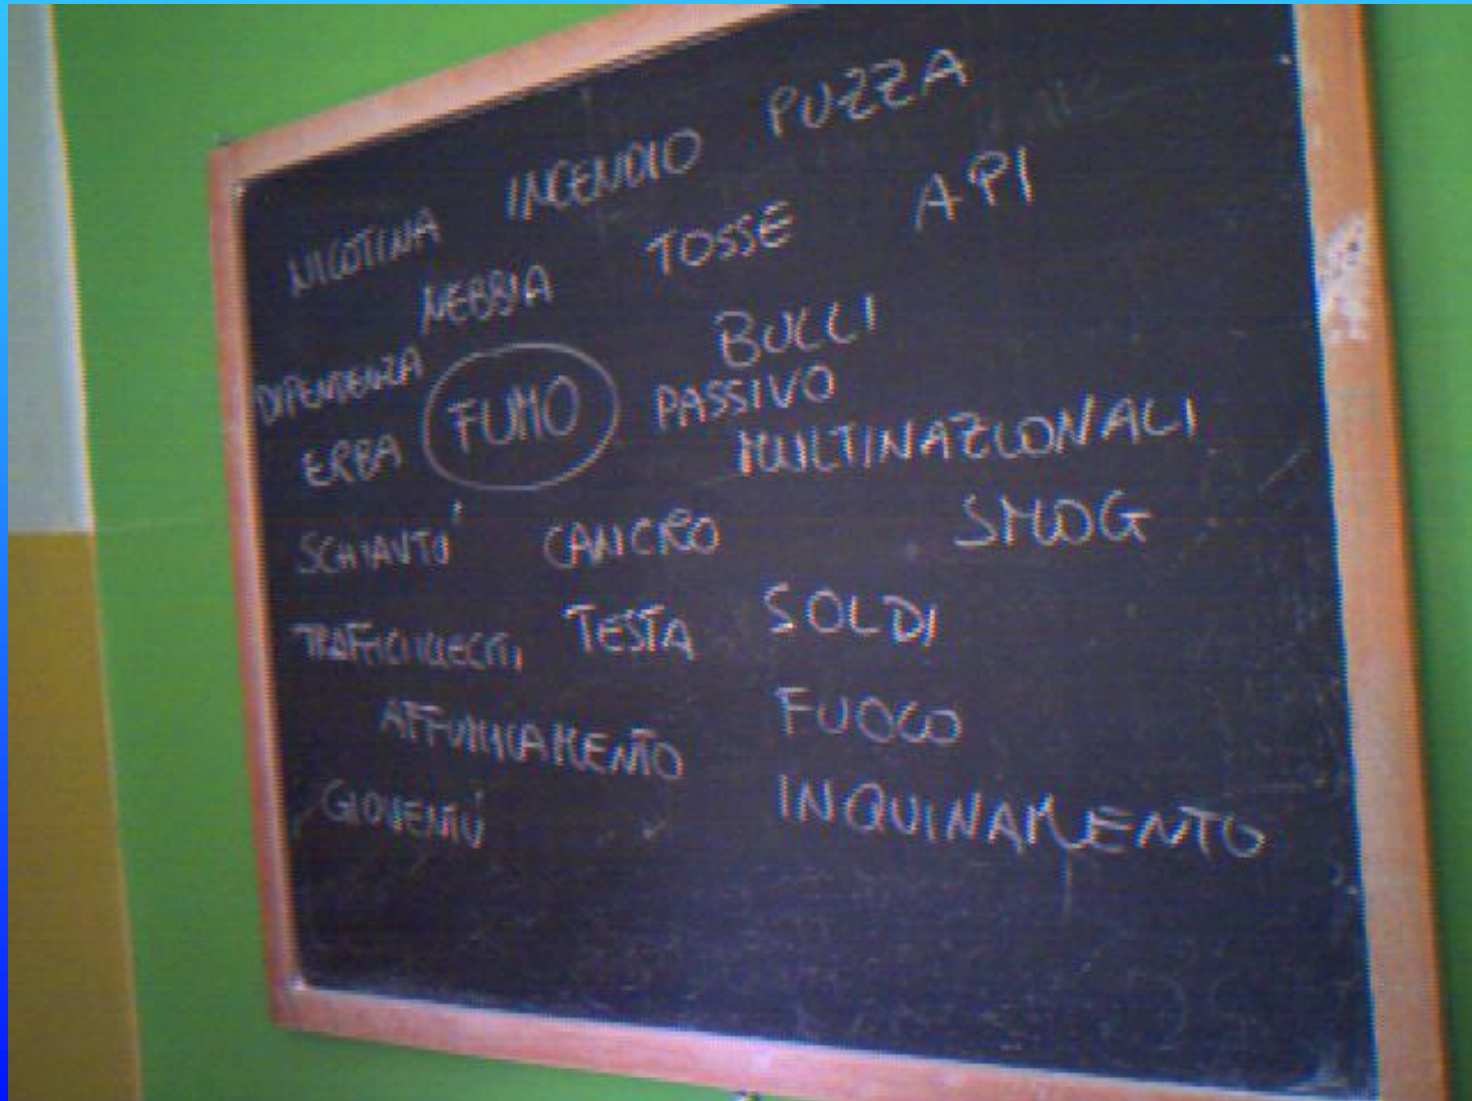 NICOTINA INCENDIO PUZZA
NEBBIA TOSSE API
DIPENDENZA FUMO BULLI
ERBA PASSIVO
MULTINAZIONALI
SCHIAVITÙ CANCRO SMOG
TRAFFICI ILLECITI TESTA SOLDI
AFFUMICAMENTO FUOCO
GIOVENTÙ INQUINAMENTO